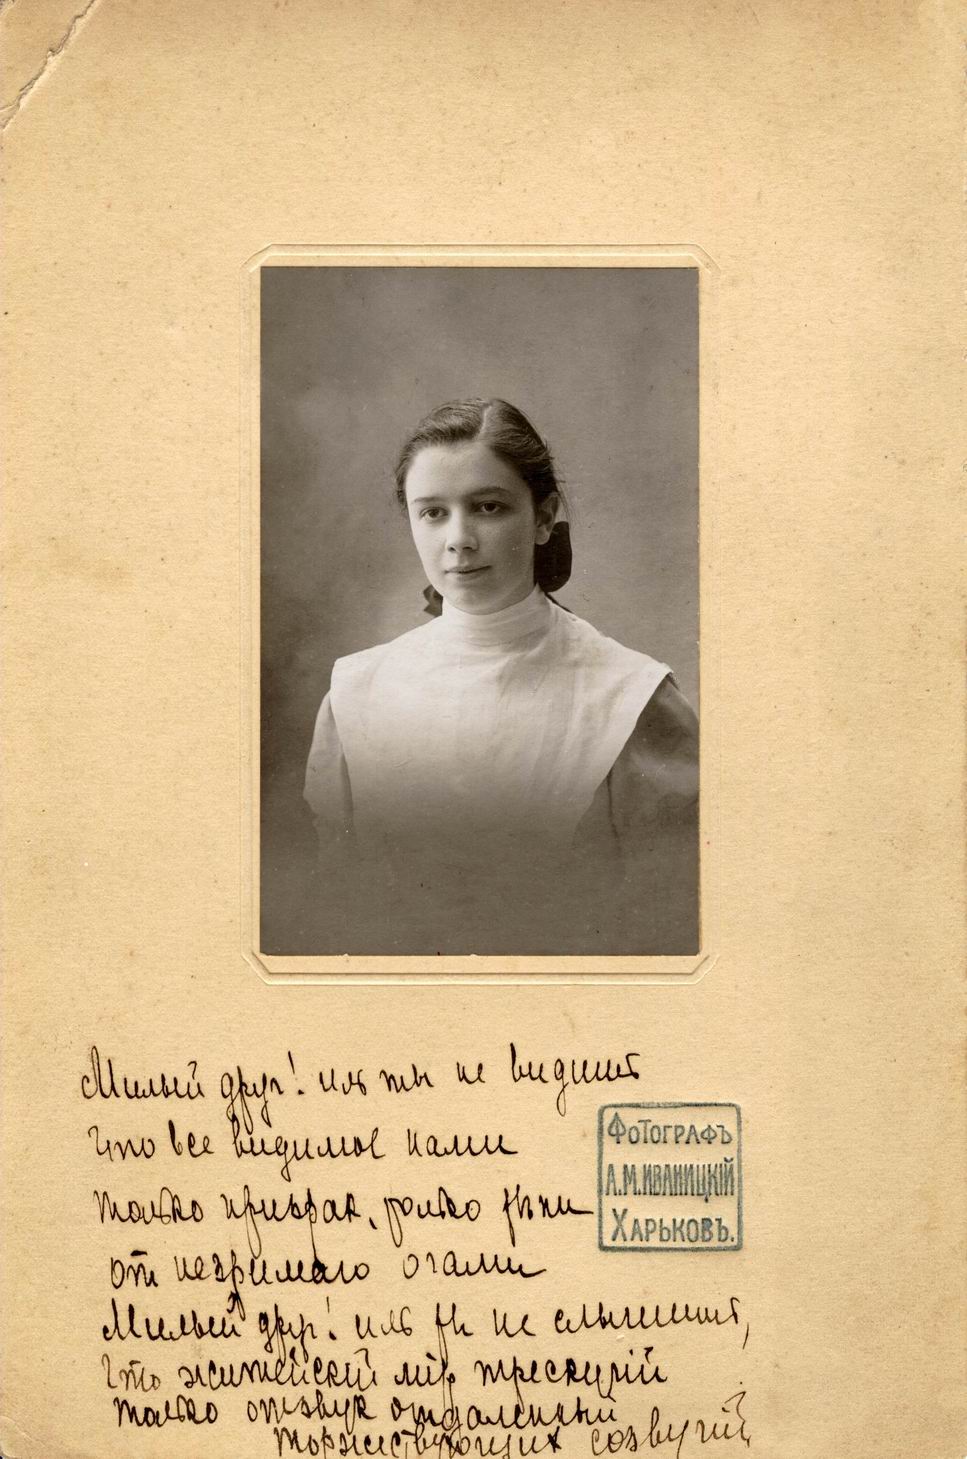 Милый друг! иль ты не видишь
Что все видимое нами
только призрак, только тени
от незримаго очами
Милый друг! иль ты не слышишь,
Что житейский мір трескучій
только отзвук отдаленный
торжествующих созвучій
Фотографъ
А.М.Иваницкій
Харьковъ.